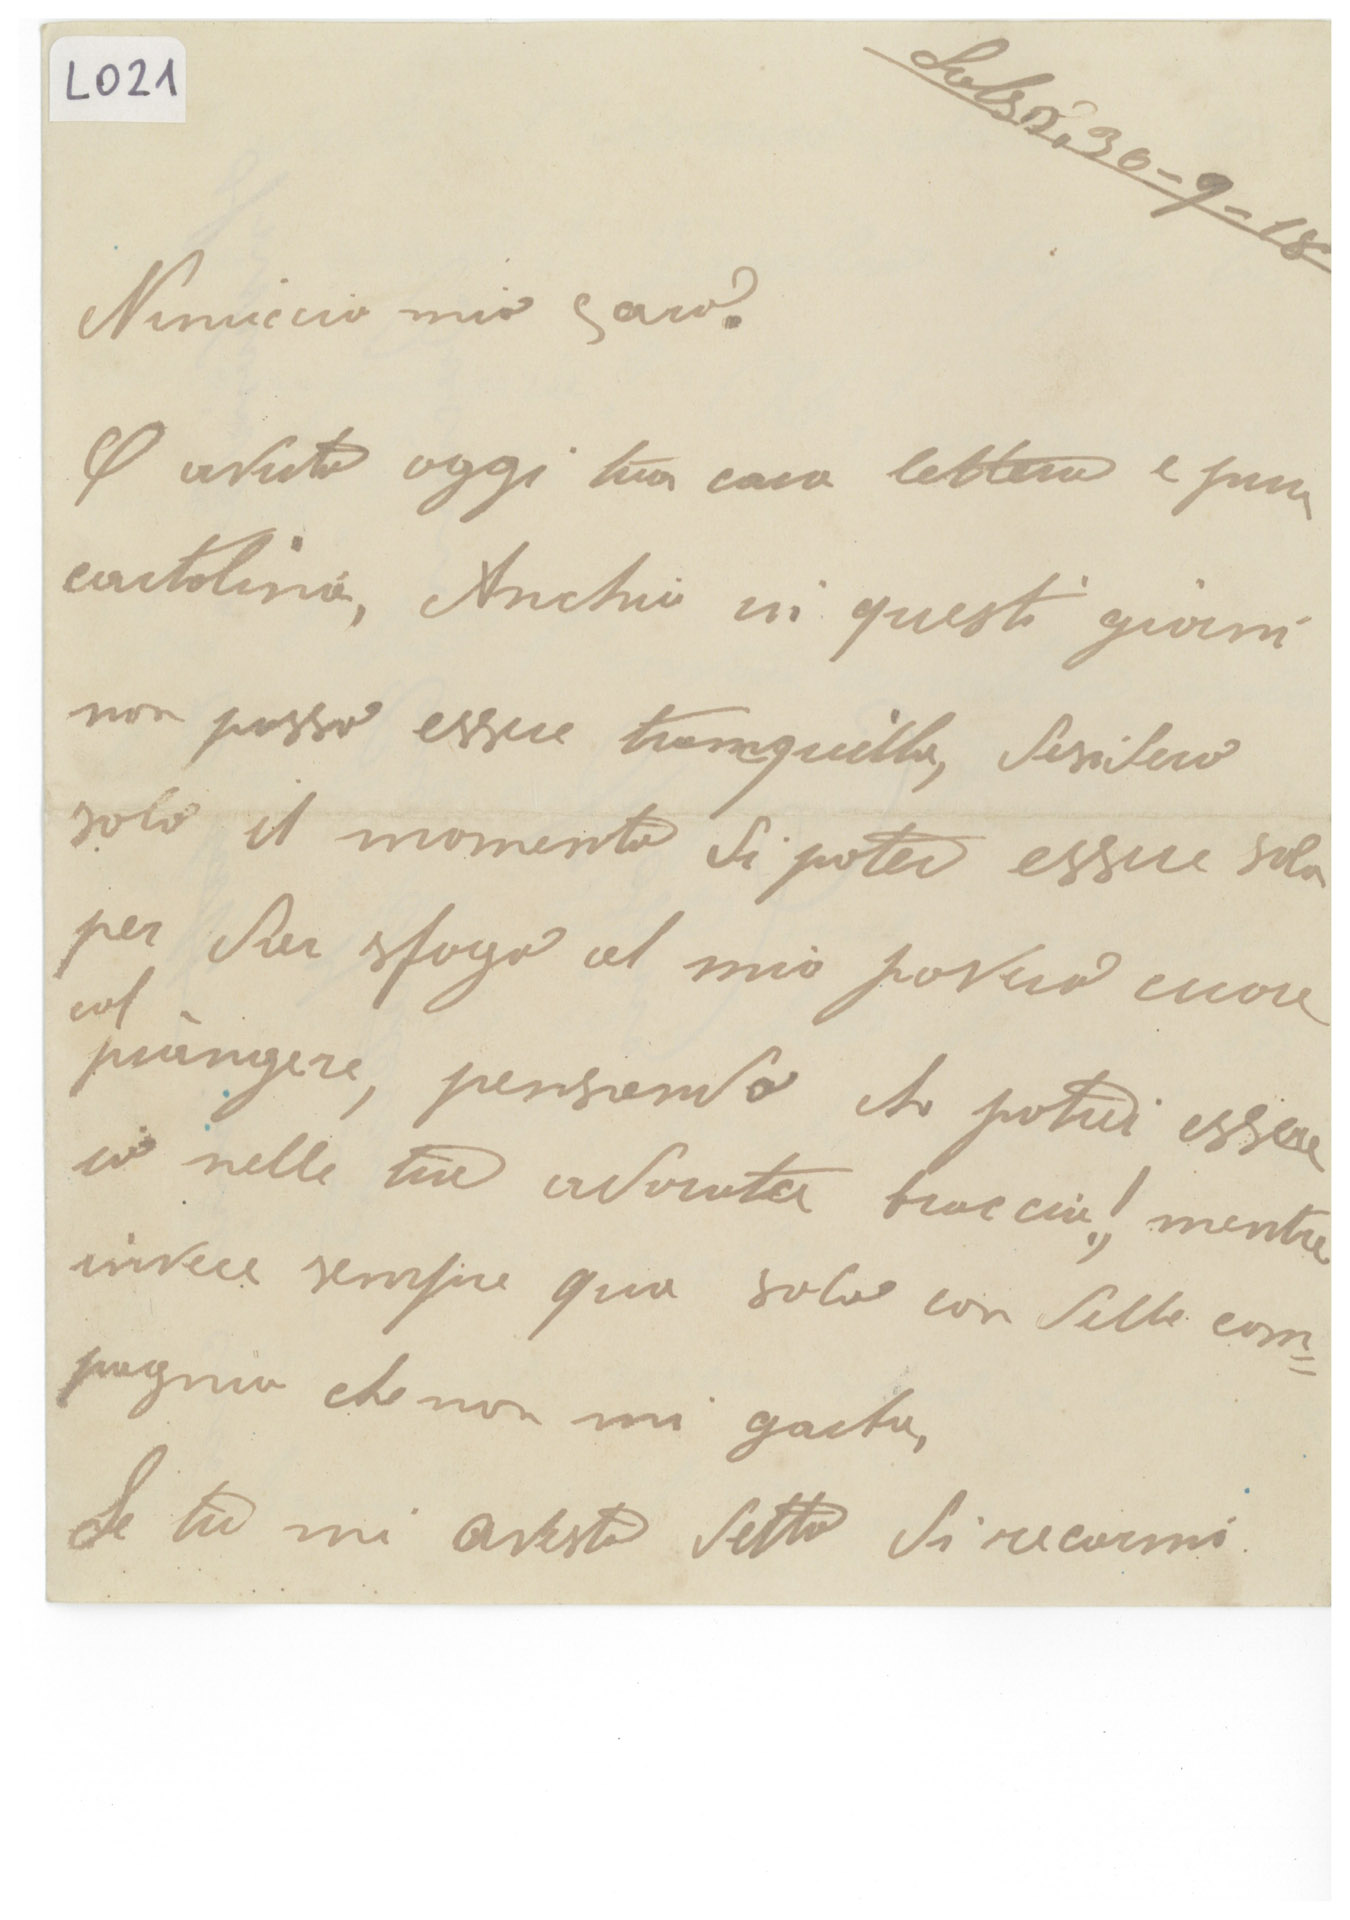 L021
30-9-18
mio caro
O avuto oggi tua cara lettera e pura
cartolina, Anchio in questi giorni
non posso essere tramquilla, desidero
solo il momento di poter essere sola
per dar sfogo al mio povero cuore
col
piangere, pensando che potrei essere
io nelle tue adorate braccia! mentre
invece sempre qua solo con delle com=
pagnia che non mi garba,
Se tu mi avesto detto di recarmi